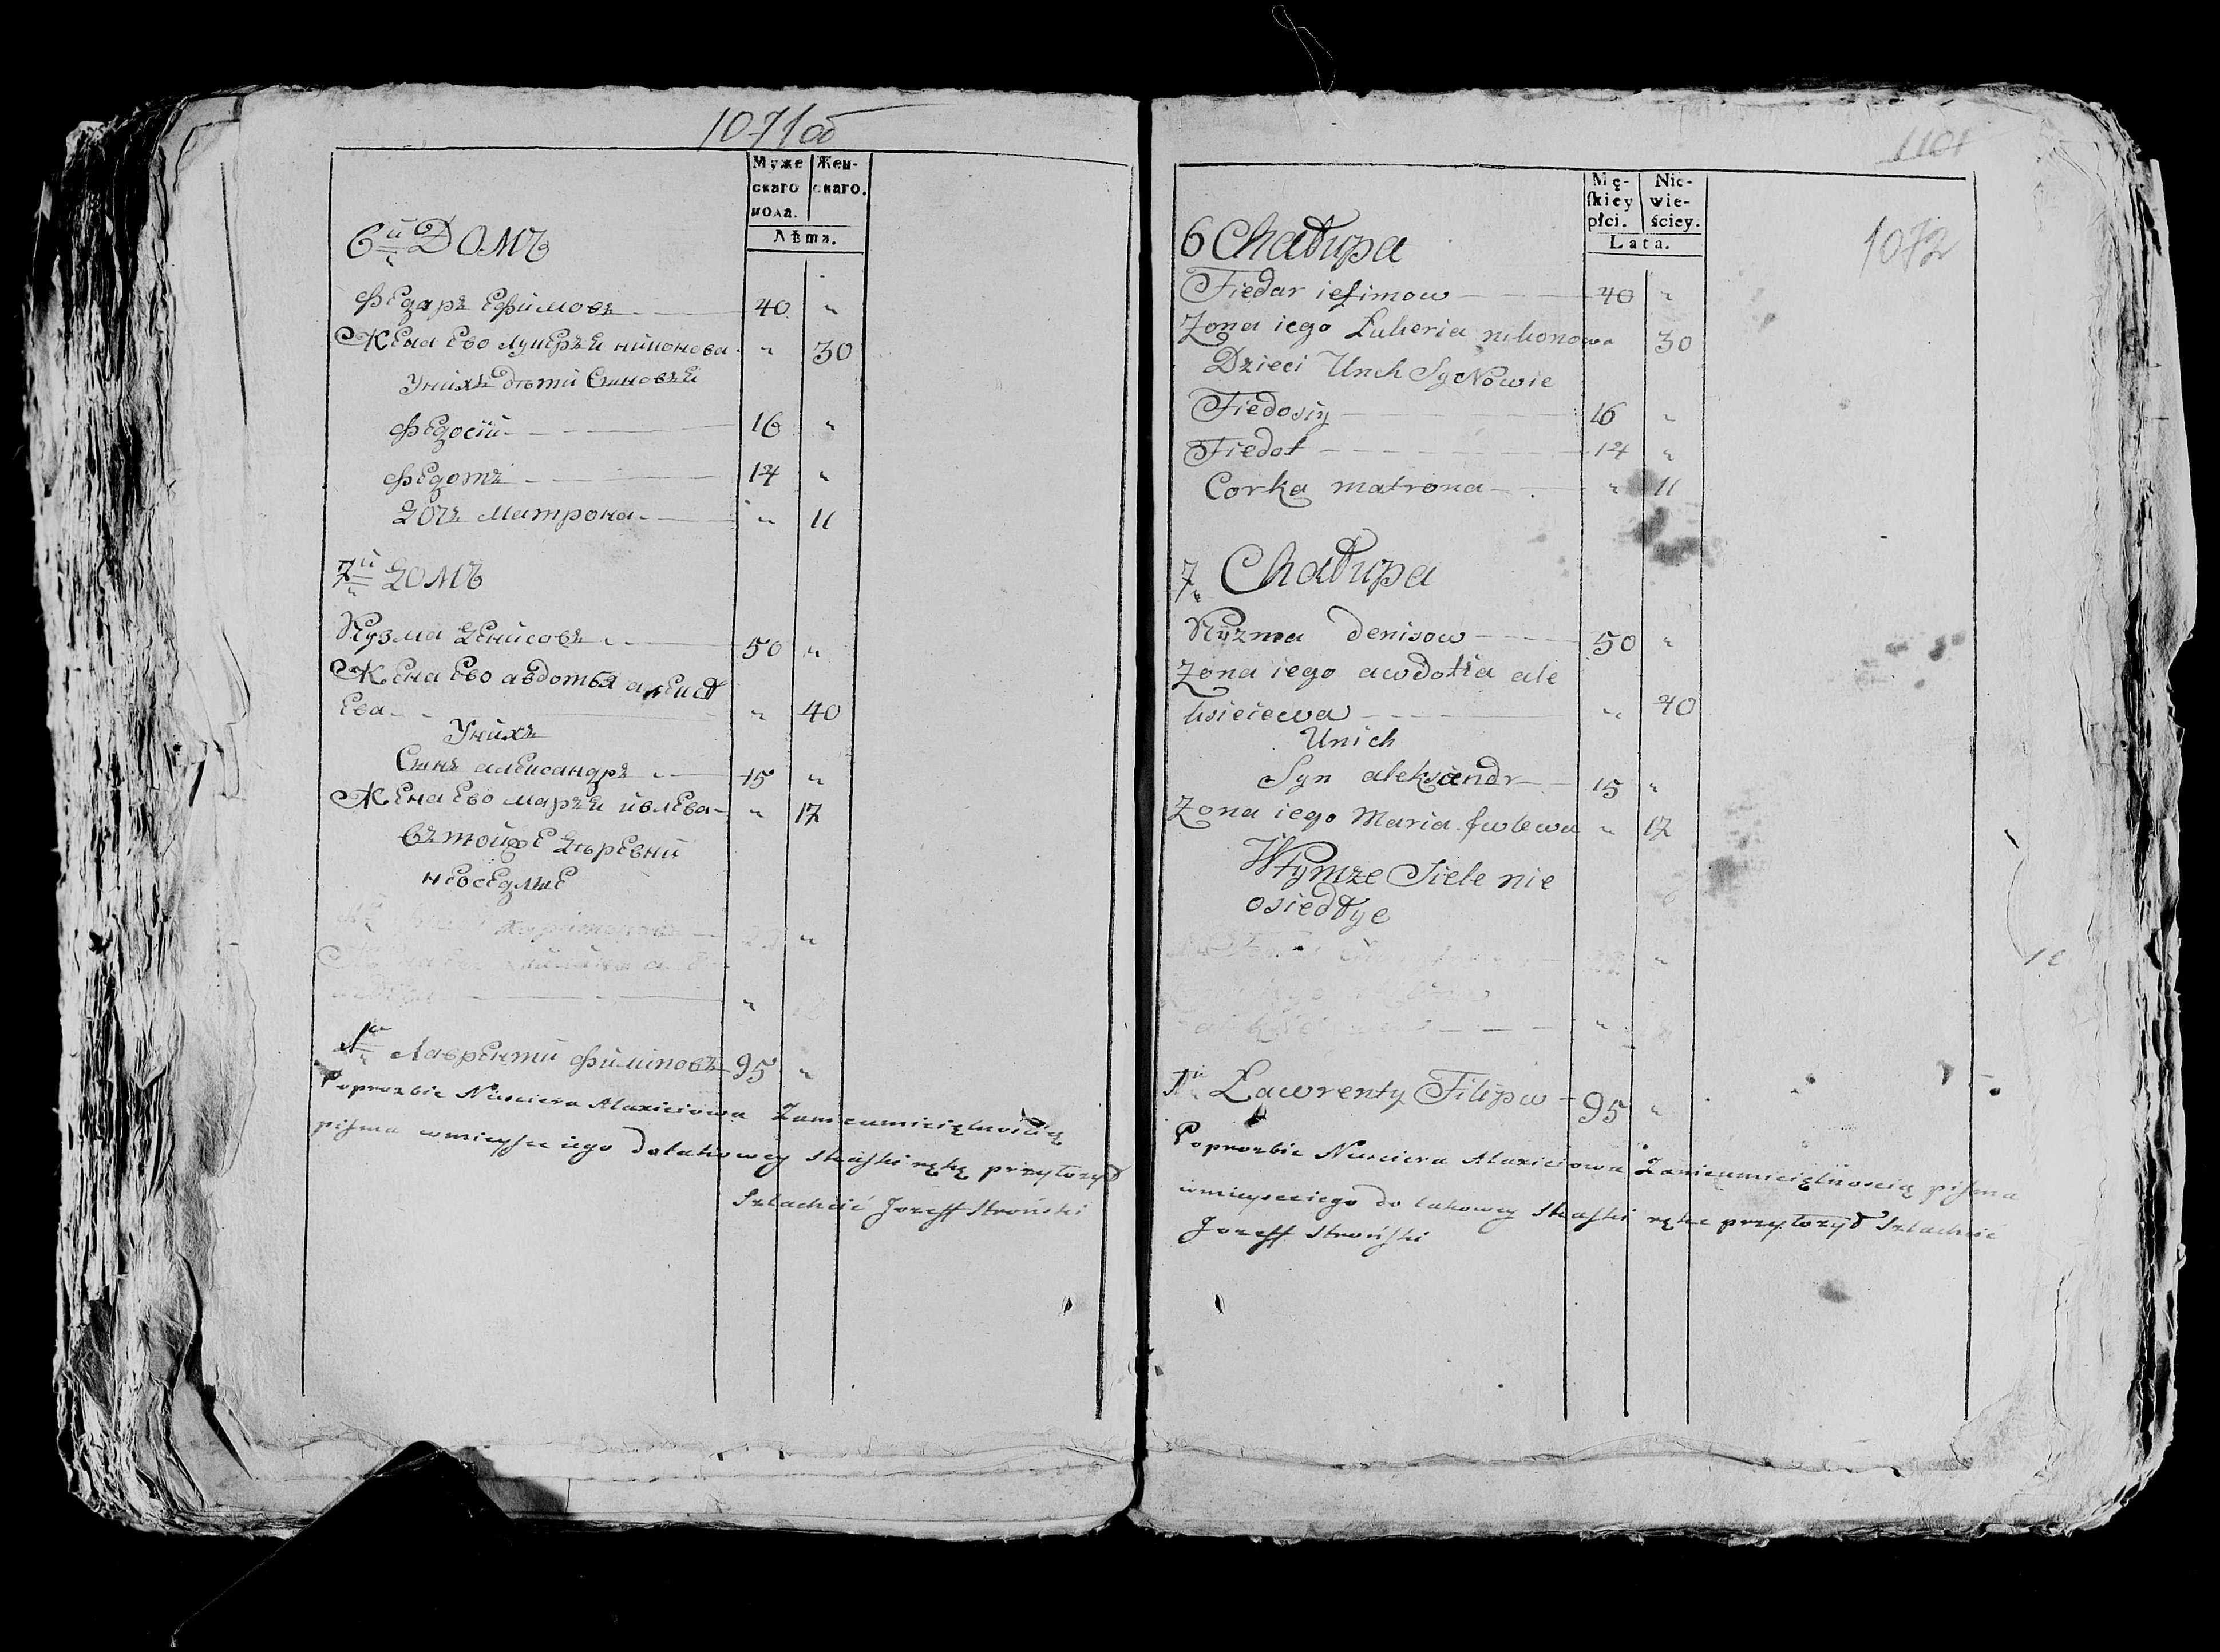 1071об
Муже
скаго
пола.
Жен-
скаго.
Лѣта.
6й ДОМЪ
Федаръ Ефимовъ 40 "
Жена Ево лукеръи никонова " 30
Унихъ дѣти Сыновъи
Федосий 16 "
Федотъ 14 "
Дочъ Матрона " 11
7й ДОМЪ
Кузма Денисовъ 50 "
Жена Ево авдотья алексѣ
Ева " 40
Унихъ
Сынъ александръ 15 "
Жена Ево маръи ивлева " 17
Вътойже Дѣревни
неоседлые
"
"
1й Лаврентий Филиповъ 95 "
Poprozbie Alaxieiowa Zanieumieiętnoscią
pisma wmieysce iego dotakowey Skaski rękę przyłozył
Szlachcic Jozeff Stroński
1101
1072
Mę-
skiey
płci.
Nie-
wie-
ściey.
Lata.
6 Chałupa
Fiedar iefimow 40 "
Zona iego Łukeria nikonowa 30
Dzieci Unich SyNowie
Fiedosiy 16 "
Fiedot 14 "
Corka matrona " 11
7 Chałupa
Kuzma denisow 50 "
Zona iego awdotia ale
ksieiewa " 40
Unich
Syn aleksandr 15 "
Zona iego Maria iwlewa " 17
Wtymze Siele nie
osiedłye
"
"
1й Ławrenty Filipow 95 "
Poprozbie Alaxieiowa Zanieumieiętnoscią pisma
wmieysceiego do takowey Skaski rękę przyłozył Szlachcic
Jozeff Stroński